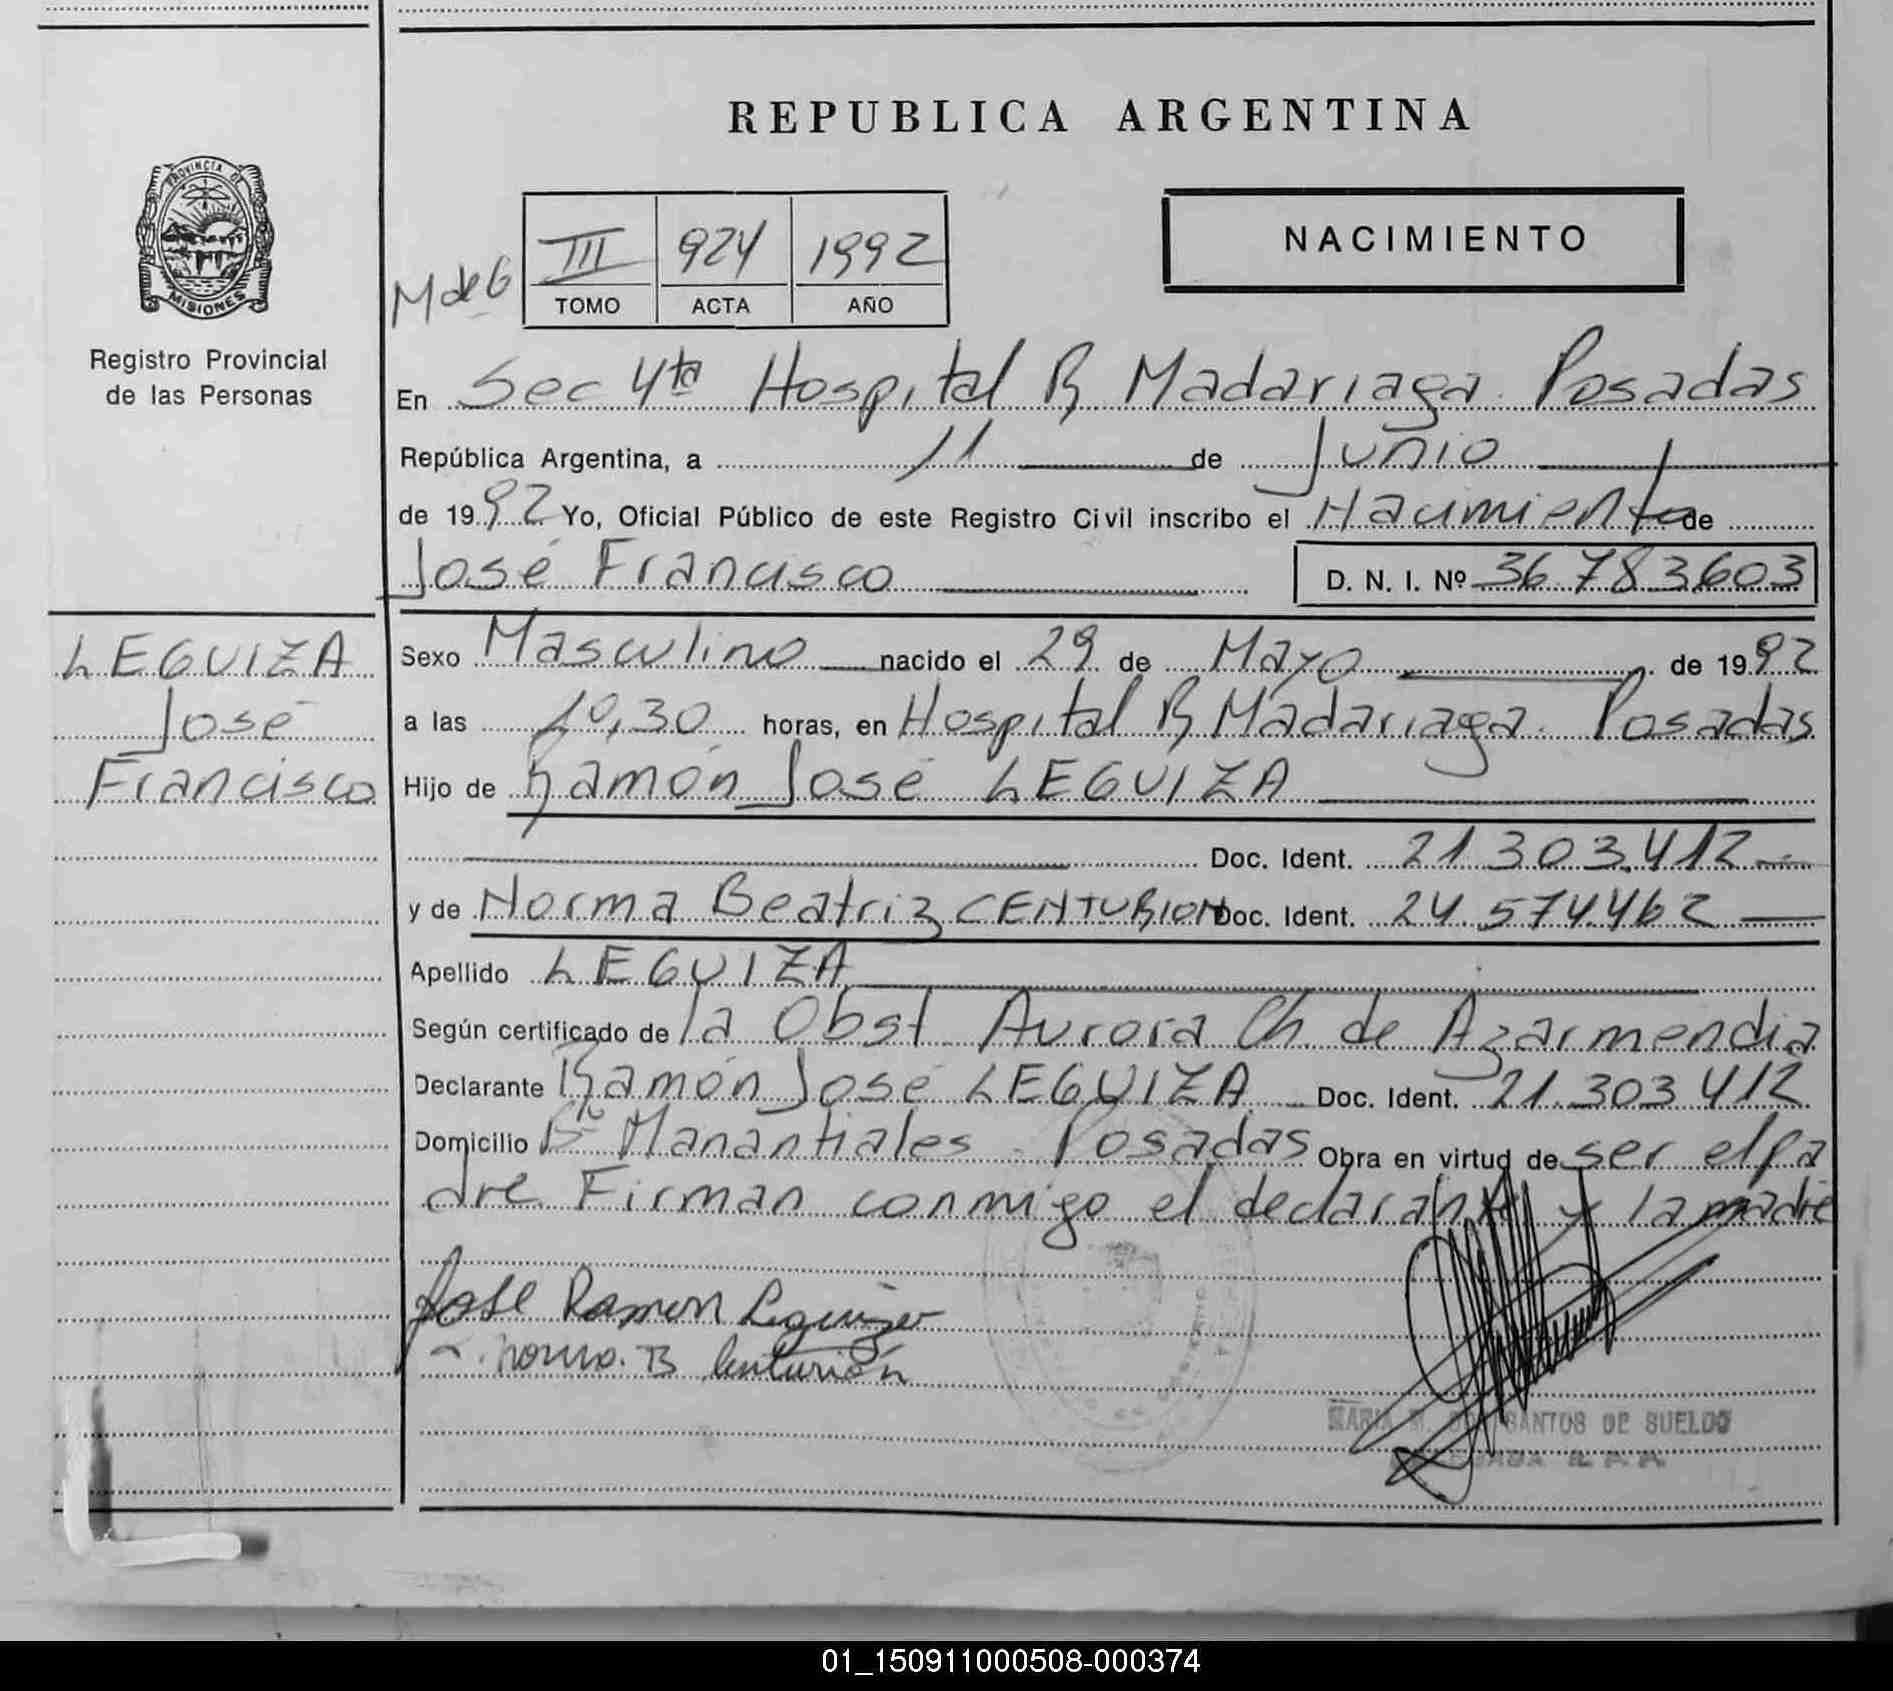 REPUBLICA ARGENTINA
PROVINCIA DE
MISIONES
Registro Provincial
de las Personas
NACIMIENTO
M de G III 924 1992
TOMO ACTA AÑO
En Sec 4ta Hospital R Madariaga. Posadas
República Argentina, a 11 de Junio
de 1992 Yo, Oficial Público de este Registro Civil inscribo el Nacimiento de
José Francisco D. N. I. Nº 36.783.603
LEGUIZA
José
Francisco
Sexo Masculino nacido el 29 de Mayo de 1992
a las 10,30 horas, en Hospital R Madariaga. Posadas
Hijo de Ramón José LEGUIZA
Doc. Ident. 21.303.412
y de Norma Beatriz CENTURION Doc. Ident. 24.574.462
Apellido LEGUIZA
Según certificado de la Obst Aurora Ch. de Azarmendia
Declarante Ramón José LEGUIZA Doc. Ident. 21.303.412
Domicilio Bº Manantiales - Posadas Obra en virtud de ser el pa
dre. Firman conmigo el declarante y la madre
José Ramon Leguiza
norma. B Centurión
MARIA M. DOS SANTOS DE SUELDO
01_150911000508-000374